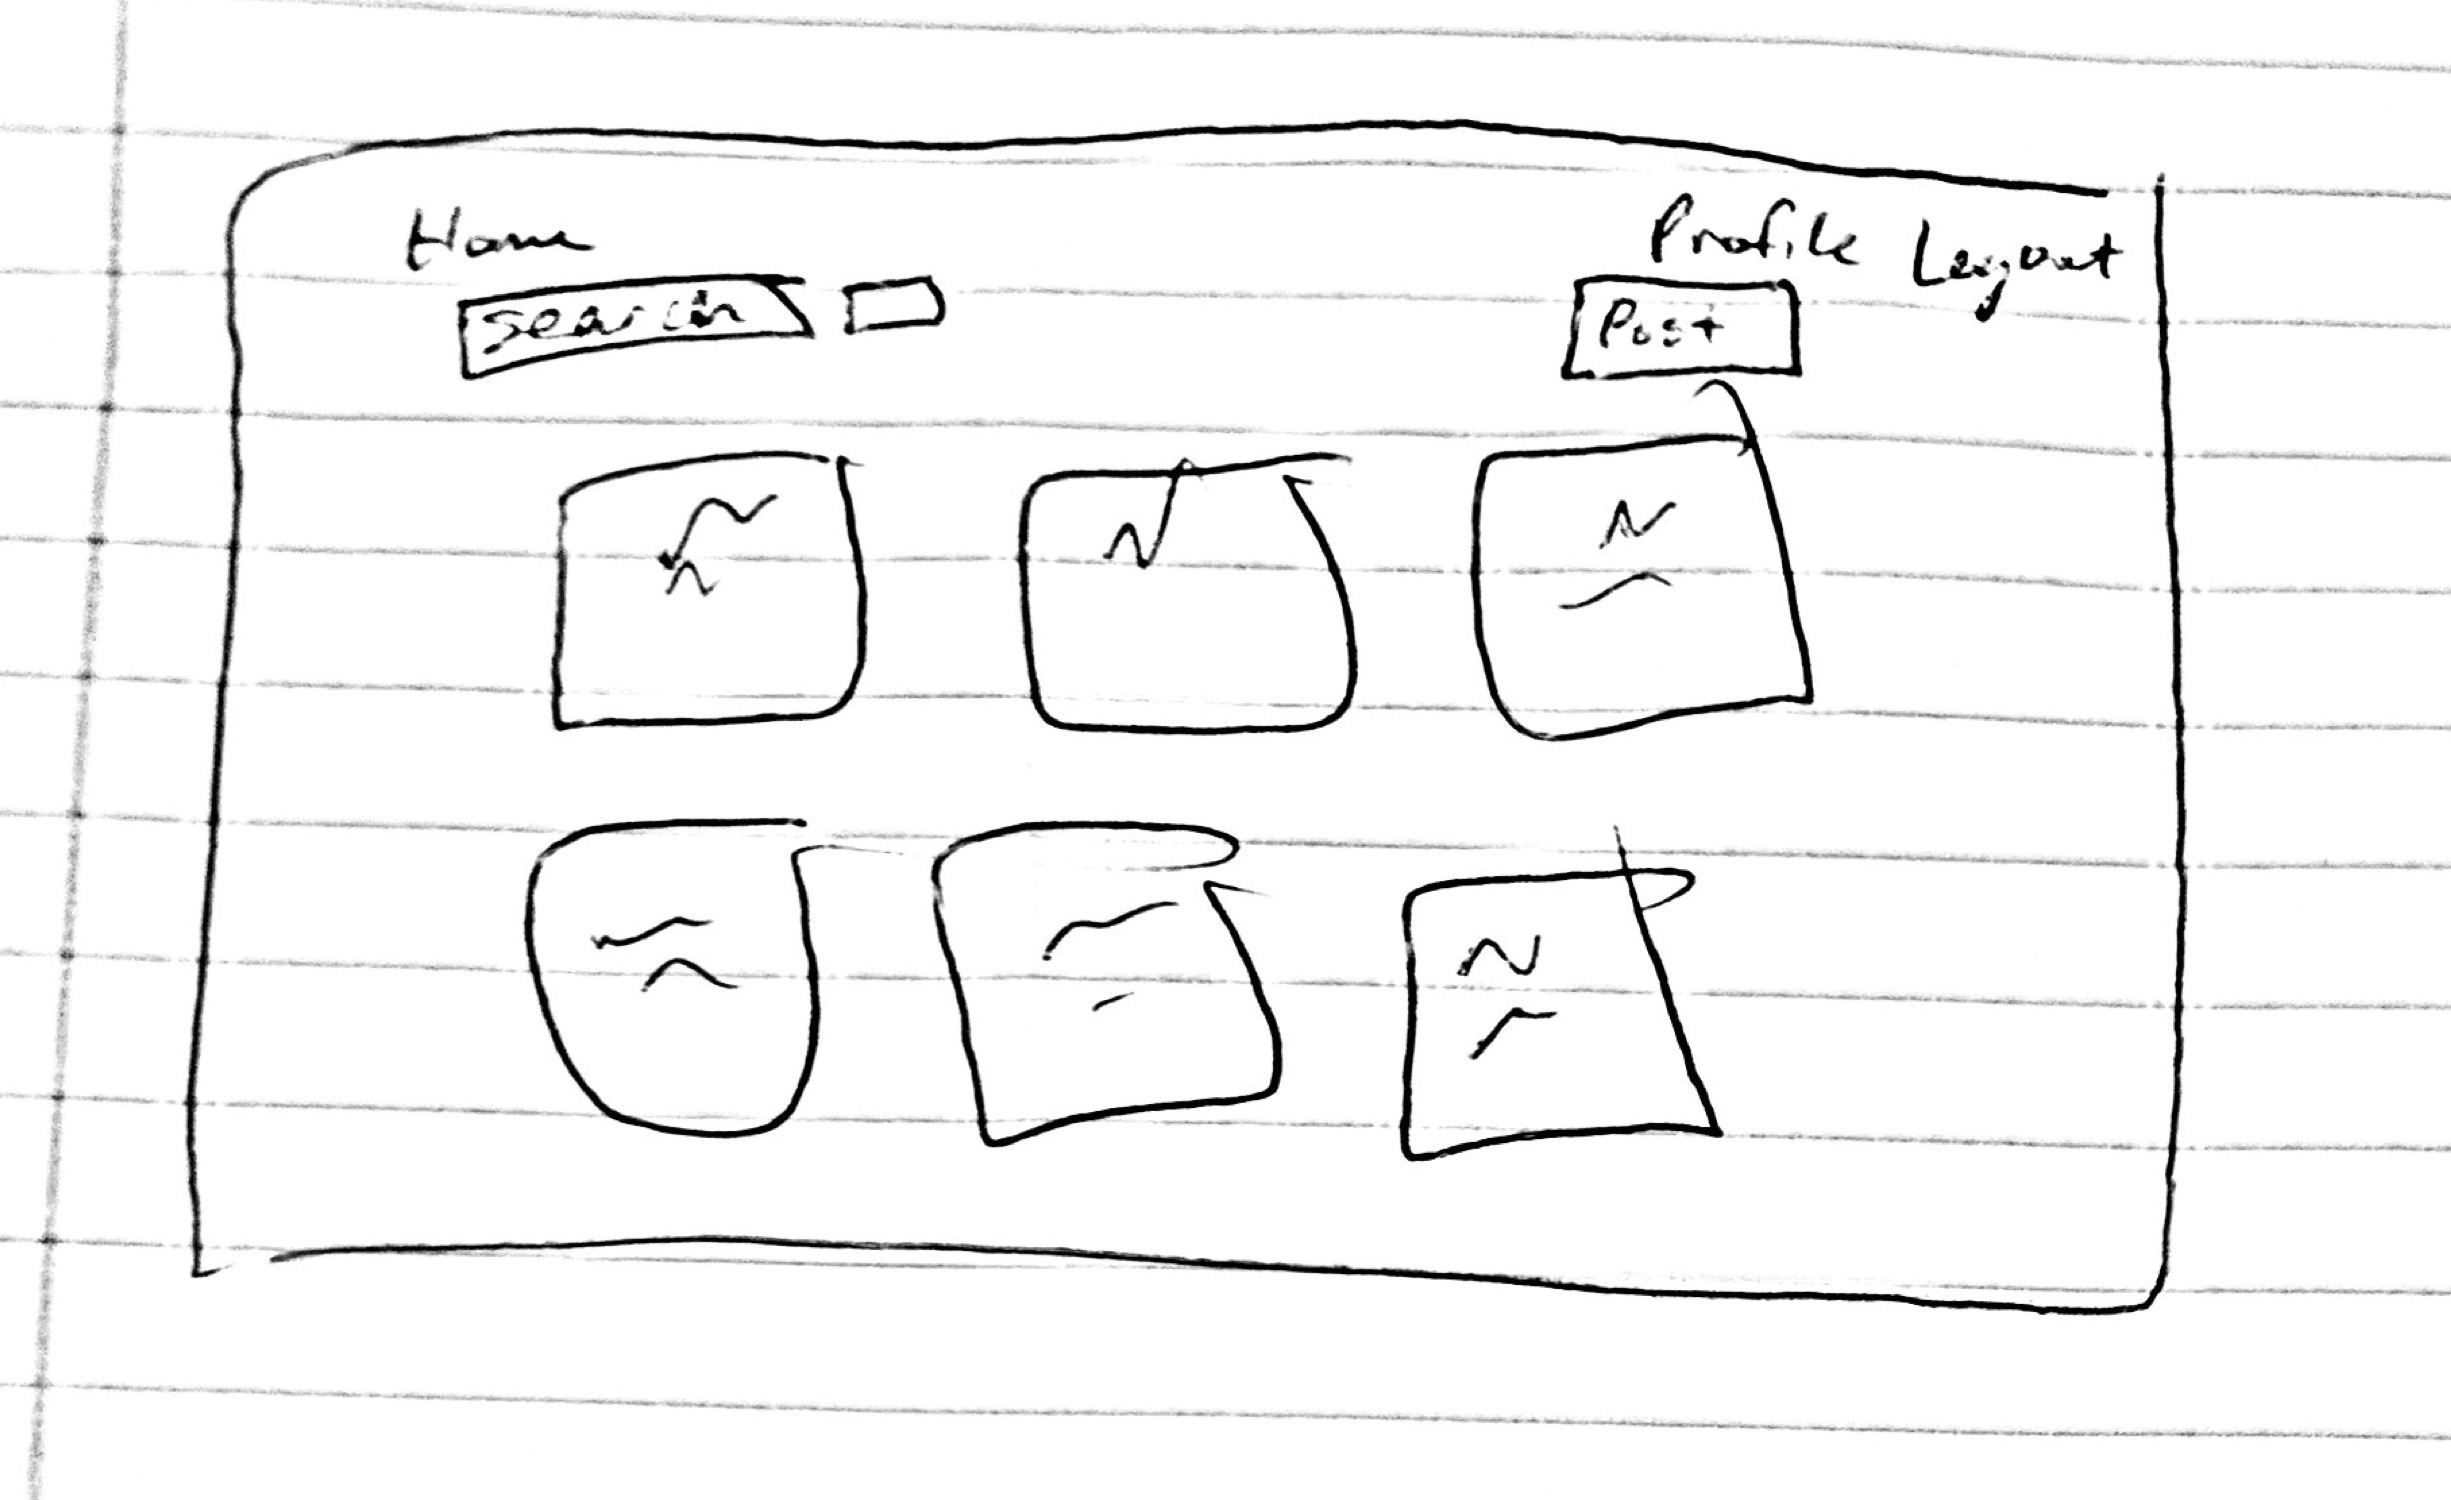 Home Profile Logout
search Post